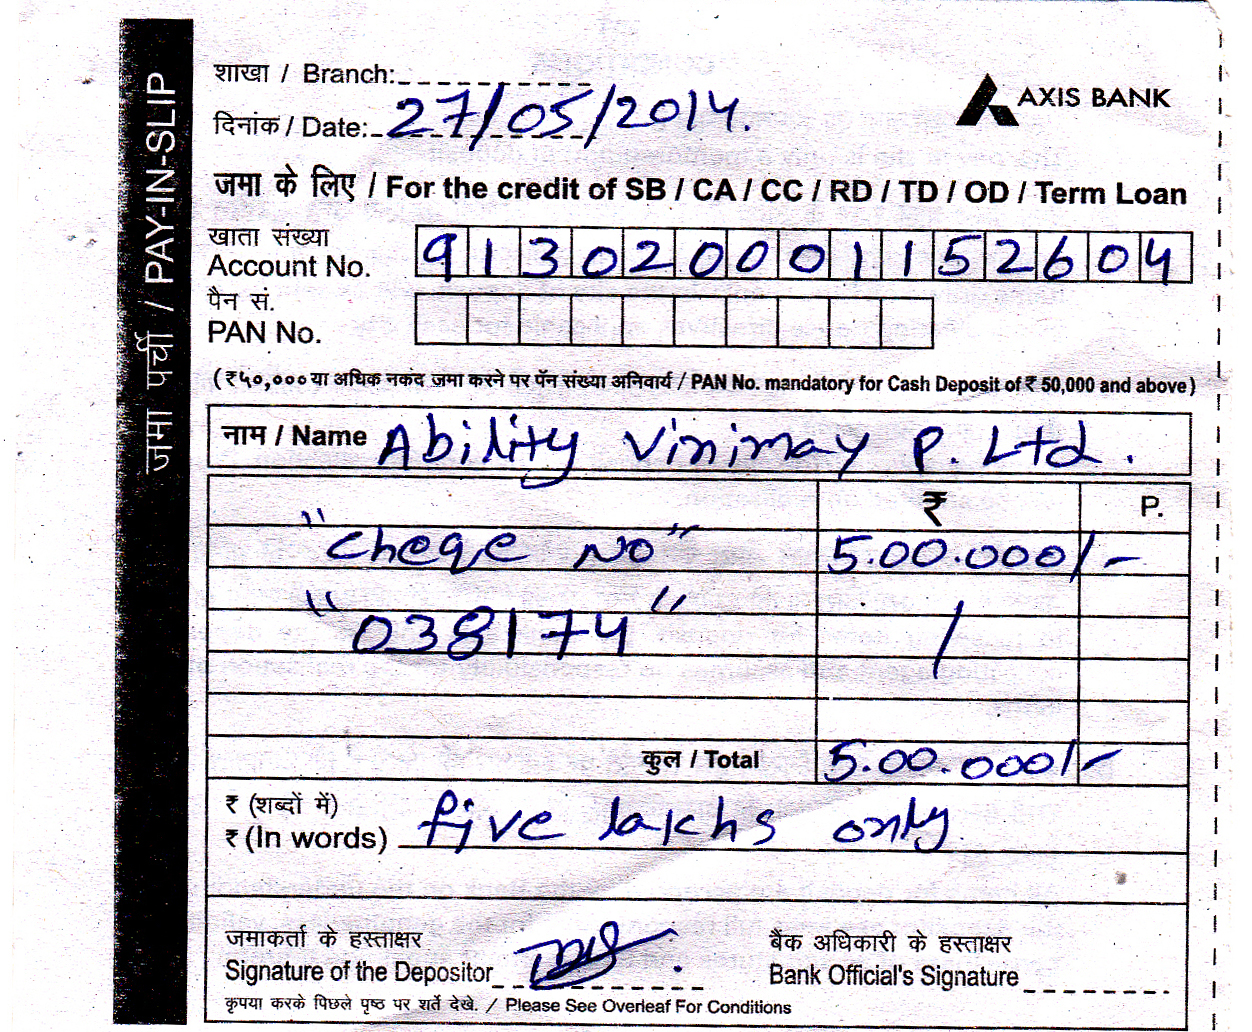 जमा पर्ची / PAY-IN-SLIP
शाखा / Branch:
AXIS BANK
दिनांक / Date: 27/05/2014.
जमा के लिए / For the credit of SB / CA / CC / RD / TD / OD / Term Loan
खाता संख्या
Account No. 913020001152604
पैन सं.
PAN No.
(₹५०,००० या अधिक नकद जमा करने पर पॅन संख्या अनिवार्य / PAN No. mandatory for Cash Deposit of ₹ 50,000 and above)
नाम / Name Ability Vinimay P. Ltd.
₹ P.
"Cheqe No" 5.00.000/-
"038174" /
कुल / Total 5.00.000/-
₹ (शब्दों में)
₹ (In words) five lakhs only
जमाकर्ता के हस्ताक्षर बैंक अधिकारी के हस्ताक्षर
Signature of the Depositor Bank Official's Signature
कृपया करके पिछले पृष्ठ पर शर्ते देखे. / Please See Overleaf For Conditions